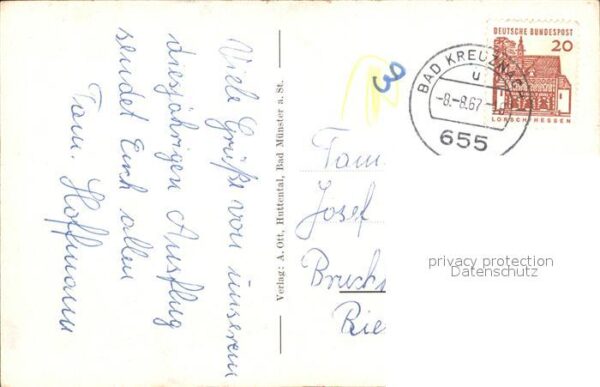 Viele Grüße von unserem
diesjährigen Ausflug
sendet Euch allen
Fam. Hoffmann
Verlag: A. Ott, Huttental, Bad Münster a. St.
3
DEUTSCHE BUNDESPOST
20
LORSCH/HESSEN
BAD KREUZNACH
u
-8.-8.67-
655
Fam.
Josef
Bruchs
Rie
privacy protection
Datenschutz